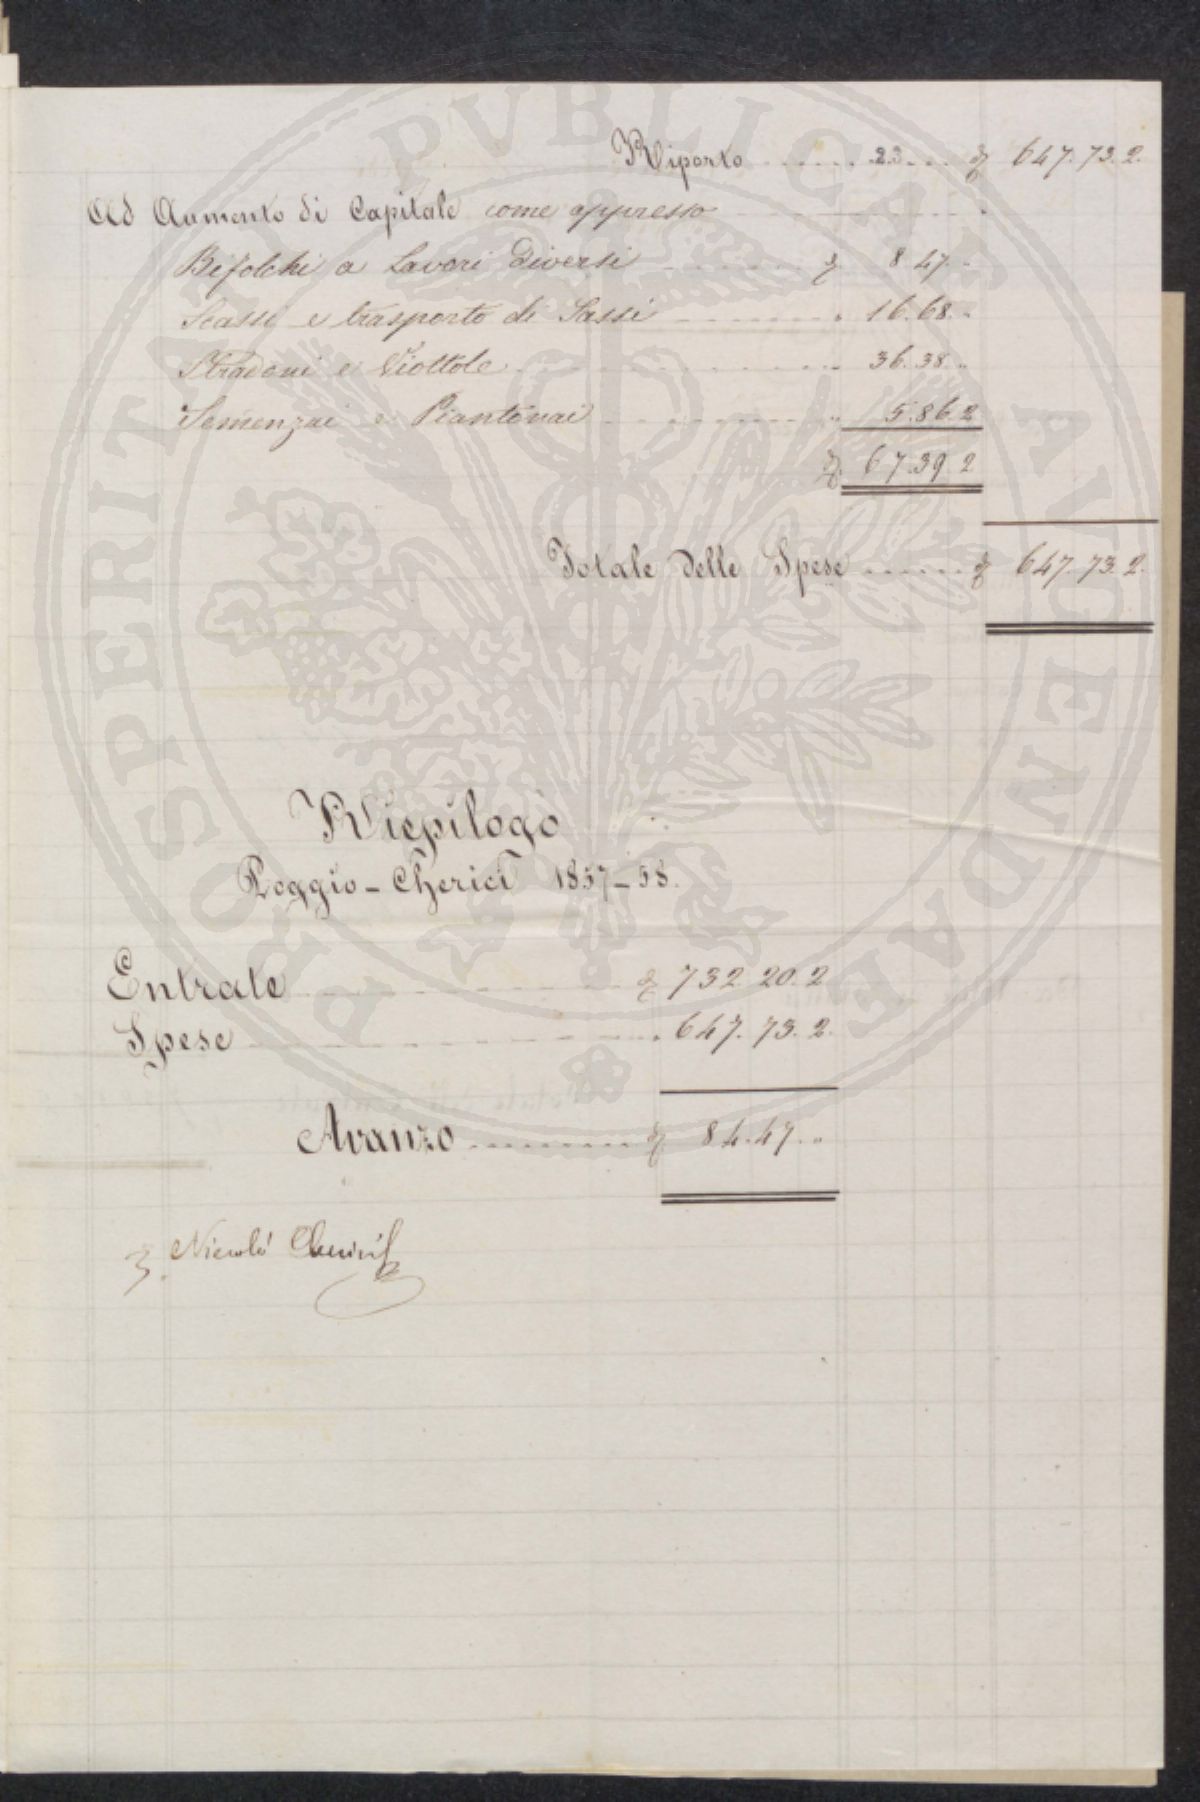 Riporto ....... 23 .... £ 647. 73. 2.
Ad Aumento di Capitale come appresso
Bifolchi a Lavori diversi £ 8 47. "
Scassi e trasporto di Sassi " 16. 68. "
Stradoni e Viottole " 36. 38. "
Semenzai e Piantonai " 5. 86. 2
£ 67. 39. 2
Totale delle Spese ....... £ 647. 73. 2.
Riepilogo
Poggio - Cherici 1857 - 58.
Entrate £ 732. 20. 2
Spese " 647. 73. 2.
Avanzo .......... £ 84. 47. "
Nicolò
PROSPERITATI PVBLICAE AVGENDAE